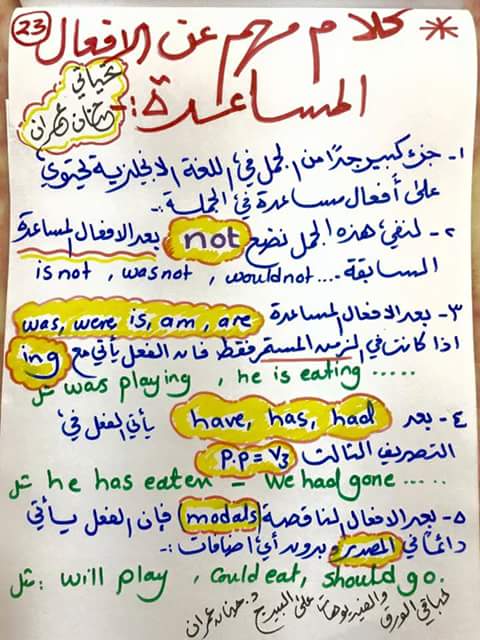 23
* كلام مهم عن الافعال
المساعدة :-
تحياتي
حنان عمران
١- جزء كبير جدًا من الجمل في اللغة الانجليزية يحتوي
على أفعال مساعدة في الجملة :-
٢- لنفي هذه الجمل نضع not بعد الافعال المساعدة
السابقة - is not , was not , would not ....
٣- بعد الافعال المساعدة was, were, is, am, are
اذا كانت في الزمن المستمر فقط فان الفعل يأتي مع ing
مثل was playing , he is eating .....
٤- بعد have, has, had يأتي الفعل في
التصريف الثالث P.P = V3
مثل he has eaten - We had gone .....
٥- بعد الافعال الناقصة (modals) فإن الفعل يأتي
دائمًا في المصدر وبدون أي اضافات :-
مثل : will play , could eat, should go.
باقي الورق والفيديوهات على البيدج د. حنان عمران